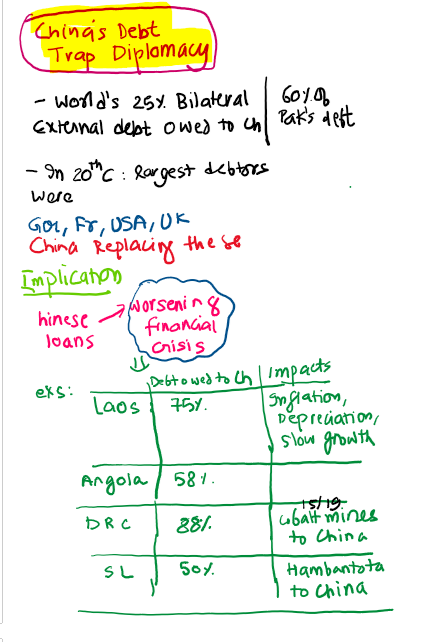 China's Debt
Trap Diplomacy
- World's 25% Bilateral
External debt owed to Ch
60% of
Pak's debt
- In 20thC: Largest debtors
were
Ger, Fr, USA, UK
China Replacing these
Implication
hinese
loans
worsening
financial
crisis
exs:
Debt owed to Ch | Impacts
Laos 75%. Inflation,
Depreciation,
slow growth
Angola 58%.
15/19
DRC 88%. Cobalt mines
to China
SL 50%. Hambantota
to China